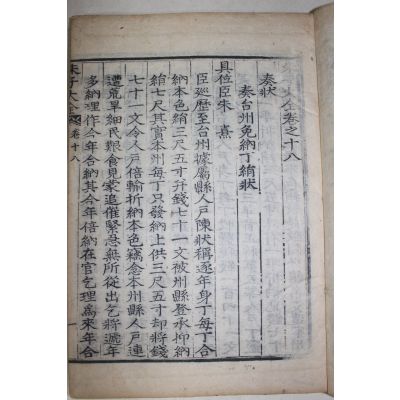 朱子大全卷之十八
奏狀
奏台州免納丁絹狀
具位臣朱 熹
臣巡歷至台州據屬縣人戶陳狀稱逐年身丁每丁合
納本色絹三尺五寸幷錢七十一文被州縣登承抑納
絹七尺其實本州每丁只發納上供三尺五寸却將錢
七十一文令人戶倍輸折納本色竊念本州人戶連
遭荒旱細民艱食見蒙追催緊急無所從出乞將遞年
多納理作今年合納其今年倍納在官乞理爲來年合
朱子大全 卷十八 一